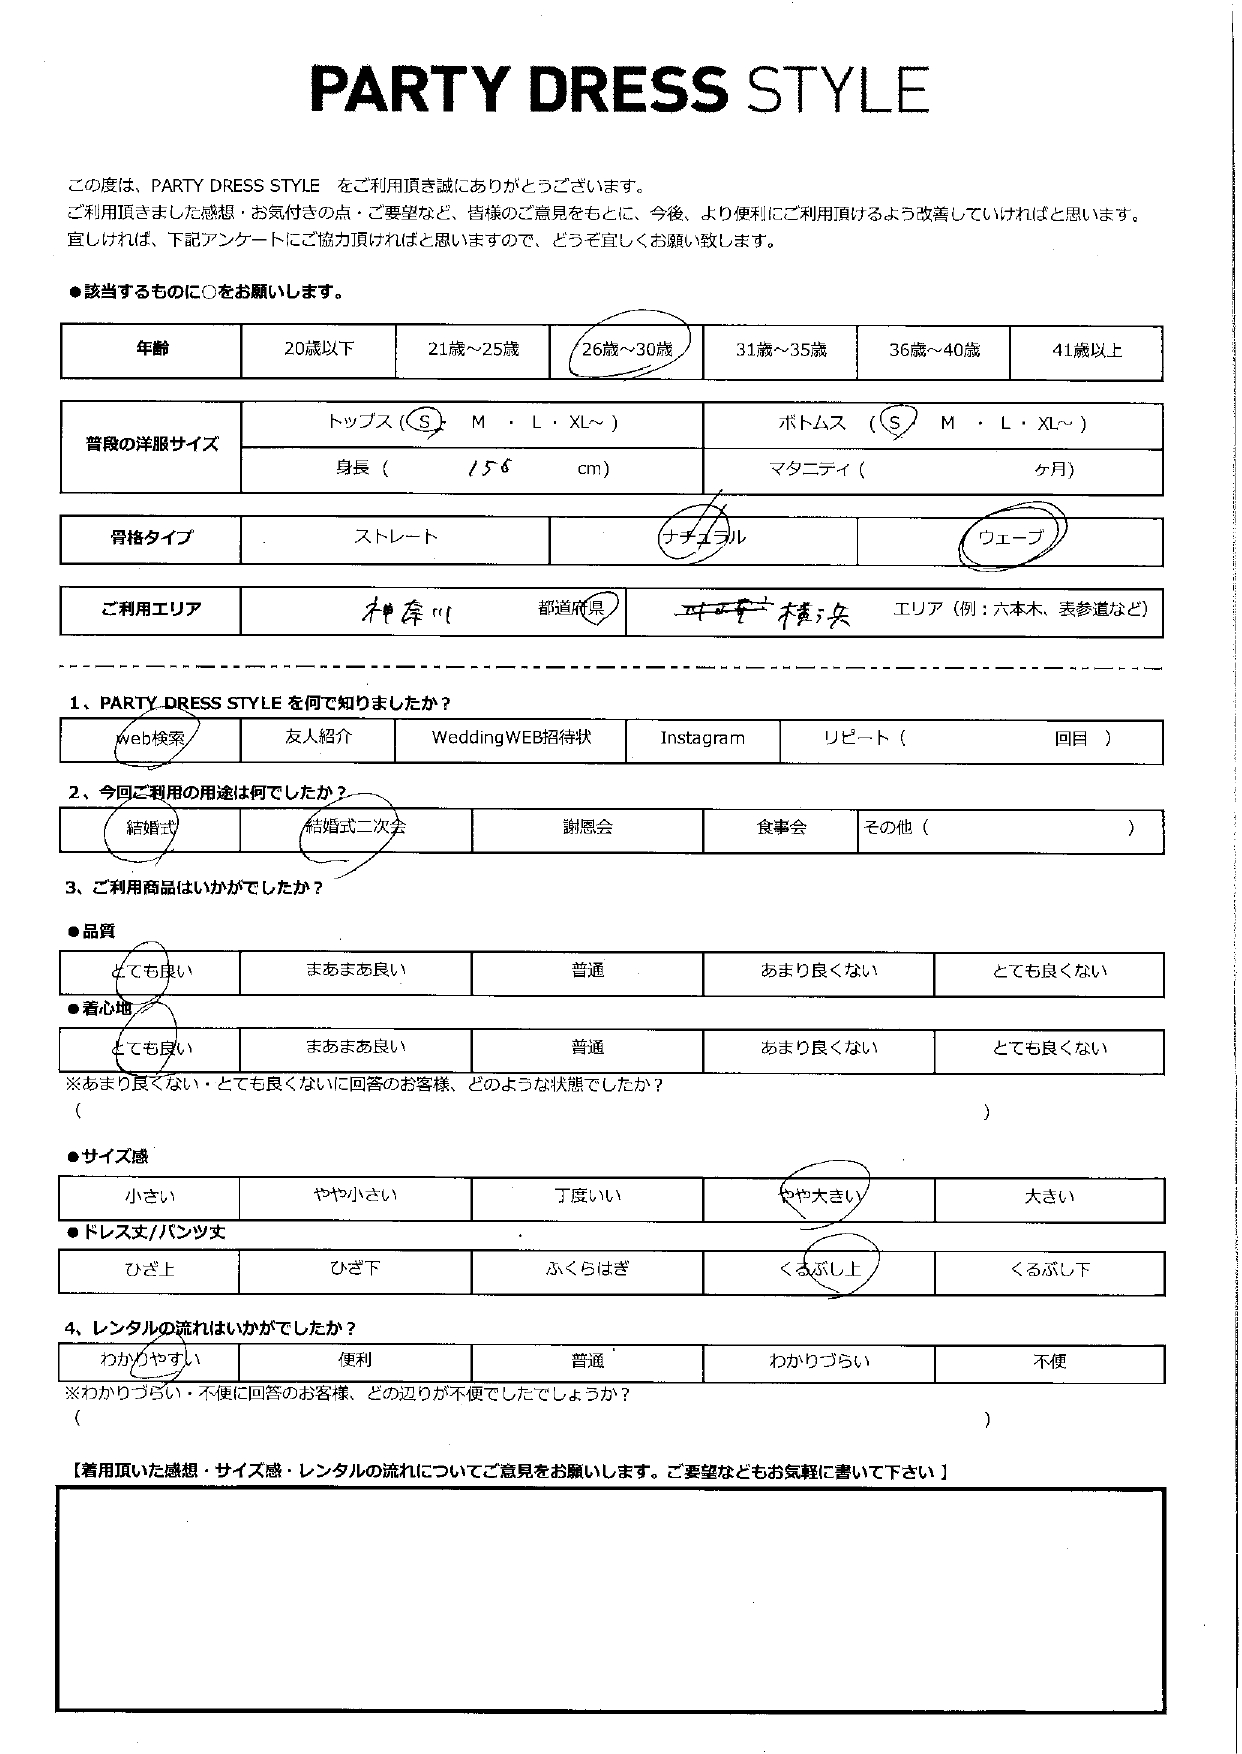 PARTY DRESS STYLE
この度は、PARTY DRESS STYLE をご利用頂き誠にありがとうございます。
ご利用頂きました感想・お気付きの点・ご要望など、皆様のご意見をもとに、今後、より便利にご利用頂けるよう改善していければと思います。
宜しければ、下記アンケートにご協力頂ければと思いますので、どうぞ宜しくお願い致します。
●該当するものに○をお願いします。
年齢 20歳以下 21歳～25歳 26歳～30歳 31歳～35歳 36歳～40歳 41歳以上
普段の洋服サイズ トップス (S・ M ・ L ・ XL～ ) ボトムス (S M ・ L ・ XL～ )
身長 ( 156 cm) マタニティ ( ヶ月)
骨格タイプ ストレート ナチュラル ウェーブ
ご利用エリア 神奈川 都道府県 横浜 エリア（例：六本木、表参道など）
1、PARTY DRESS STYLE を何で知りましたか？
web検索 友人紹介 WeddingWEB招待状 Instagram リピート ( 回目 )
2、今回ご利用の用途は何でしたか？
結婚式 結婚式二次会 謝恩会 食事会 その他 ( )
3、ご利用商品はいかがでしたか？
●品質
とても良い まあまあ良い 普通 あまり良くない とても良くない
●着心地
とても良い まあまあ良い 普通 あまり良くない とても良くない
※あまり良くない・とても良くないに回答のお客様、どのような状態でしたか？
( )
●サイズ感
小さい やや小さい 丁度いい やや大きい 大きい
●ドレス丈/パンツ丈
ひざ上 ひざ下 ふくらはぎ くるぶし上 くるぶし下
4、レンタルの流れはいかがでしたか？
わかりやすい 便利 普通 わかりづらい 不便
※わかりづらい・不便に回答のお客様、どの辺りが不便でしたでしょうか？
( )
【着用頂いた感想・サイズ感・レンタルの流れについてご意見をお願いします。ご要望などもお気軽に書いて下さい 】